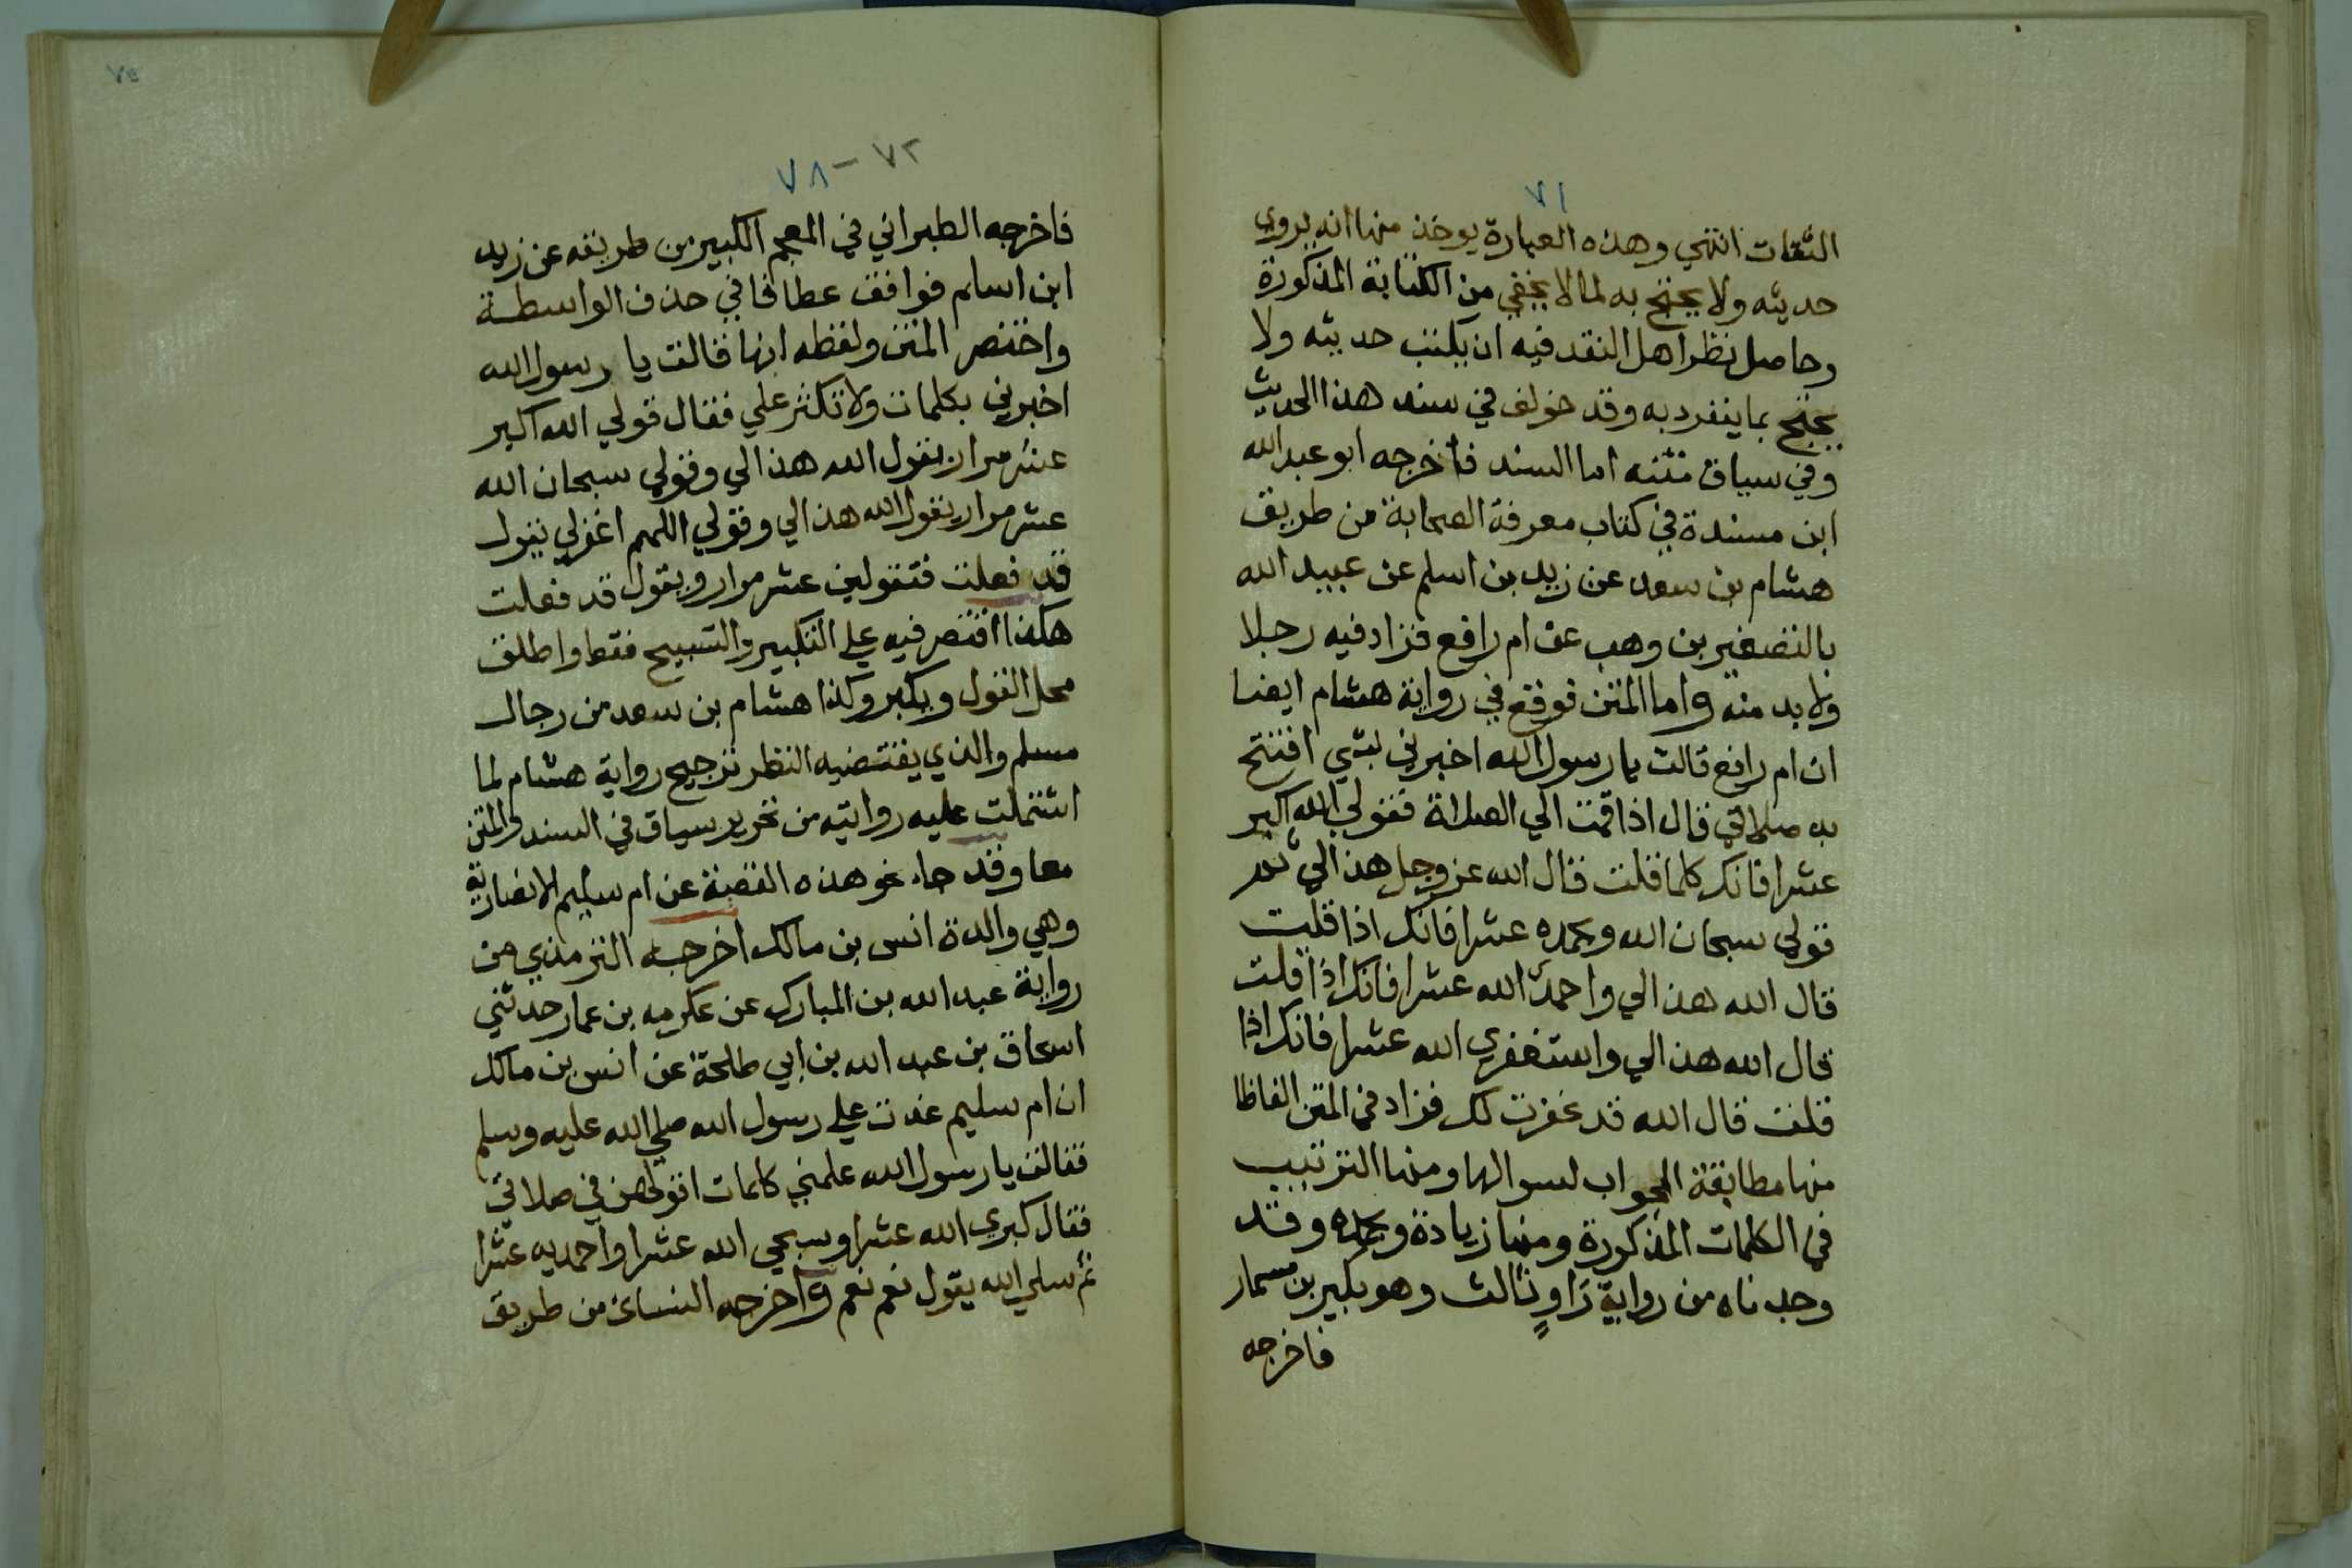 ٧١
الثقات انتهي وهذه العبارة يوخذ منها انه يروي
حديثه ولا يحتج به لما لا يخفي من الكتابة المذكورة
وحاصل نظر اهل النقد فيه ان يكتب حديثه ولا
يحتج بما ينفرد به وقد خولف في سند هذا الحديث
وفي سياق متنه اما السند فاخرجه ابو عبد الله
ابن مسندة في كتاب معرفة الصحابة من طريق
هشام بن سعد عن زيد بن اسلم عن عبيد الله
بالتصغير بن وهب عن ام رافع فزاد فيه رجلا
ولا بد منه واما المتن فوقع في رواية هشام ايضا
ان ام رافع قالت يا رسول الله اخبرني بشي افتتح
به صلاتي قال اذا قمت الي الصلاة فقولي الله اكبر
عشرا فانك كلما قلت قال الله عز وجل هذا لي ثم
قولي سبحان الله وبحمده عشرا فانك اذا قلت
قال الله هذا لي واحمد الله عشرا فانك اذا قلت
قال الله هذا لي واستغفري الله عشرا فانك اذا
قلت قال الله قد غفرت لك فزاد في المتن الفاظا
منها مطابقة الجواب لسوالها ومنها الترتيب
في الكلمات المذكورة ومنها زيادة وبحمده وقد
وجدناه من رواية راوٍ ثالث وهو بكير بن مسمار
فاخرجه
٧٢ - ٧٨
فاخرجه الطبراني في المعجم الكبير من طريقه عن زيد
ابن اسلم فوافق عطافا في حذف الواسطة
واختصر المتن ولفظه انها قالت يا رسول الله
اخبرني بكلمات ولا تكثر علي فقال قولي الله اكبر
عشر مرار يقول الله هذا لي وقولي سبحان الله
عشر مرار يقول الله هذا لي وقولي اللهم اغفر لي يقول
قد فعلت فتقولين عشر مرار ويقول قد فعلت
هكذا اقتصر فيه علي التكبير والتسبيح فقط واطلق
محل القول وبكير وكذا هشام بن سعد من رجال
مسلم والذي يقتضيه النظر ترجيح رواية هشام لما
اشتملت عليه روايته من تحرير سياق في السند والمتن
معا وقد جاء نحو هذه القصة عن ام سليم الانصارية
وهي والدة انس بن مالك اخرجه الترمذي من
رواية عبد الله بن المبارك عن عكرمه بن عمار حدثني
اسحاق بن عبد الله بن ابي طلحة عن انس بن مالك
ان ام سليم غدت علي رسول الله صلي الله عليه وسلم
فقالت يا رسول الله علمني كلمات اقولهن في صلاتي
فقال كبري الله عشرا وسبحي الله عشرا واحمديه عشرا
ثم سلي الله يقول نعم نعم واخرجه النسائ من طريق